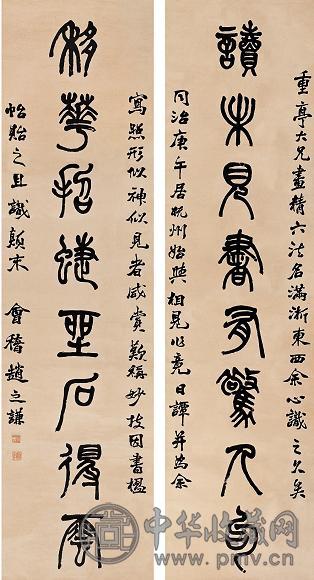 重亭大兄畫精六法名滿浙東西余心識之久矣
讀未見書有驚人句
同治庚午居杭州始與相見作竟日譚并為余
寫照形似神似見者咸賞歎稱妙技因書楹
移華招蝶坐石得雲
帖貽之且識顛末 會稽趙之謙
中华收藏网
www.pmv.cn